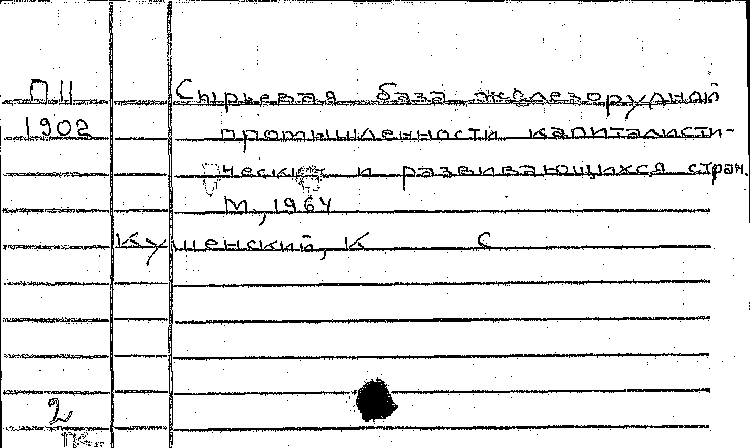 П11 Сырьевая база железорудной
1902 промышленности капиталисти-
ческих и развивающихся стран.
М., 1964
Кушенский, К С
2